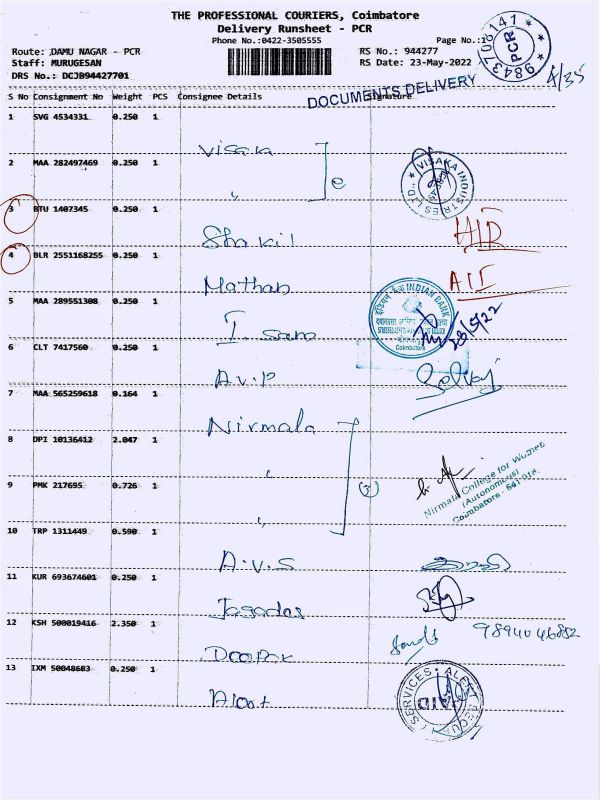 THE PROFESSIONAL COURIERS, Coimbatore
Delivery Runsheet - PCR
Phone No.:0422-3505555 Page No.:1
Route: DAMU NAGAR - PCR RS No.: 944277
Staff: MURUGESAN RS Date: 23-May-2022
DRS No.: DCJB94427701
9843708141 PCR
4/35
DOCUMENTS DELIVERY
S No Consignment No Weight PCS Consignee Details Signature
1 SVG 4534331 0.250 1
Visaka
2 MAA 282497469 0.250 1
VISAKA INDUSTRIES LTD.,
3 BTU 1407345 0.250 1
Shakil
4 BLR 2551168255 0.250 1
Mathan
5 MAA 289551308 0.250 1
इंडियन बैंक INDIAN BANK
Coimbatore
23/5/22
I. Sam
6 CLT 7417560 0.250 1
A.V.P Selvaj
7 MAA 565259618 0.164 1
Nirmala
8 DPI 10136412 2.047 1
3
9 PMK 217695 0.726 1
Nirmala College for Women
(Autonomous)
Coimbatore - 641 018.
10 TRP 1311449 0.590 1
A.V.S
11 KUR 693674601 0.250 1
Jagadas
12 KSH 500019416 2.350 1
9894046882
Deepak
13 IXM 50048683 0.250 1
Alert
SERVICES